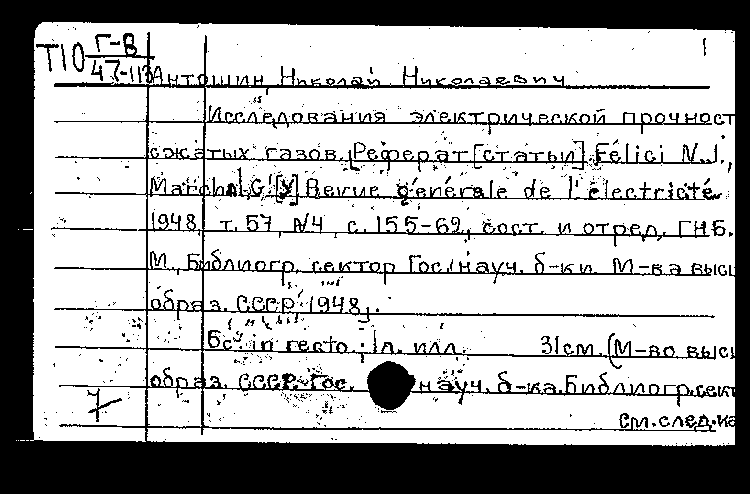 1
Т10 Г-В
47-113 Антошин, Николай Николаевич
Исследования электрической прочност
сжатых газов. [Реферат [статьи] Félici N.J.,
Marchal G. [У] Revue générale de l'électricité
1948, т. 57, №4, с. 155-62, сост. и отред. ГНБ.
М., Библиогр. сектор Гос. науч. б-ки М-ва высш
образ. СССР 1948].
6с. in recto.; 1л. илл. 31см. (М-во высш
образ. СССР. Гос. науч. б-ка. Библиогр. сект
7 см. след. ка